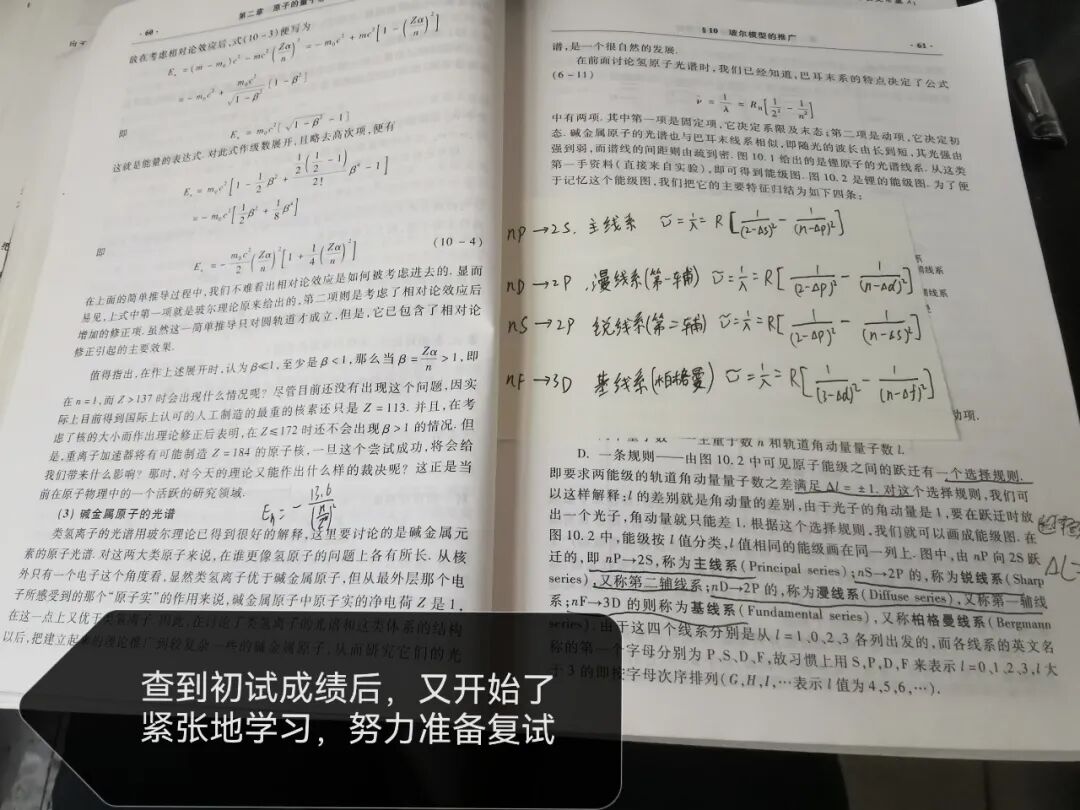 · 60 ·
第二章 原子的量子
故在考虑相对论效应后,式(10-3)便写为
即
这就是能量的表达式. 对此式作级数展开,且略去高次项,便有
即
(10-4)
在上面的简单推导过程中,我们不难看出相对论效应是如何被考虑进去的. 显而
易见,上式中第一项就是玻尔理论原来给出的,第二项则是考虑了相对论效应后
增加的修正项. 虽然这一简单推导只对圆轨道才成立,但是,它已包含了相对论
修正引起的主要效果.
值得指出,在作上述展开时,认为β≪1,至少是β<1,那么当β=Zα/n>1,即
在n=1,而Z>137时会出现什么情况呢? 尽管目前还没有出现这个问题,因实
际上目前得到国际上认可的人工制造的最重的核素还只是Z=113. 并且,在考
虑了核的大小而作出理论修正后表明,在Z≤172时还不会出现β>1的情况. 但
是,重离子加速器将有可能制造Z=184的原子核,一旦这个尝试成功,将会给
我们带来什么影响? 那时,对今天的理论又能作出什么样的裁决呢? 这正是当
前在原子物理中的一个活跃的研究领域.
(3) 碱金属原子的光谱
类氢离子的光谱用玻尔理论已得到很好的解释,这里要讨论的是碱金属元
素的原子光谱. 对这两大类原子来说,在谁更像氢原子的问题上各有所长. 从核
外只有一个电子这个角度看,显然类氢离子优于碱金属原子,但从最外层那个电
子所感受到的那个“原子实”的作用来说,碱金属原子中原子实的净电荷Z是1,
在这一点上又优于类氢离子. 因此,在讨论了类氢离子的光谱和这类体系的结构
以后,把建立起来的理论推广到较复杂一些的碱金属原子,从而研究它们的光
§10 玻尔模型的推广
· 61 ·
谱,是一个很自然的发展.
在前面讨论氢原子光谱时,我们已经知道,巴耳末系的特点决定了公式
(6-11)
中有两项. 其中第一项是固定项,它决定系限及末态;第二项是动项,它决定初
态. 碱金属原子的光谱也与巴耳末线系相似,即随光的波长由长到短,其光强由
强到弱,而谱线的间距则由疏到密. 图10.1给出的是锂原子的光谱线系. 从这类
第一手资料(直接来自实验),即可得到能级图. 图10.2是锂的能级图. 为了便
于记忆这个能级图,我们把它的主要特征归结为如下四条:
nP→2S. 主线系 ṽ=1/λ=R[1/(2-Δs)²-1/(n-Δp)²]
nD→2P. 漫线系(第一辅) ṽ=1/λ=R[1/(2-Δp)²-1/(n-Δd)²]
nS→2P 锐线系(第二辅) ṽ=1/λ=R[1/(2-Δp)²-1/(n-Δs)²]
nF→3D 基线系(柏格曼) ṽ=1/λ=R[1/(3-Δd)²-1/(n-Δf)²]
动项.
主量子数n和轨道角动量量子数l.
D. 一条规则——由图10.2中可见原子能级之间的跃迁有一个选择规则.
即要求两能级的轨道角动量量子数之差满足Δl=±1. 对这个选择规则,我们可
以这样解释:l的差别就是角动量的差别,由于光子的角动量是1,要在跃迁时放
出一个光子,角动量就只能差1. 根据这个选择规则,我们就可以画成能级图. 在
图10.2中,能级按l值分类,l值相同的能级画在同一列上. 图中,由nP向2S跃
迁的,即nP→2S,称为主线系(Principal series);nS→2P的,称为锐线系(Sharp
series),又称第二辅线系;nD→2P的,称为漫线系(Diffuse series),又称第一辅线
系;nF→3D的则称为基线系(Fundamental series),又称柏格曼线系(Bergmann
series). 由于这四个线系分别是从l=1、0、2、3各列出发的,而各线系的英文名
称的第一个字母分别为P、S、D、F,故习惯上用S,P,D,F来表示l=0,1,2,3,l大
于3的即按字母次序排列(G,H,I,…表示l值为4,5,6,…).
查到初试成绩后,又开始了
紧张地学习,努力准备复试